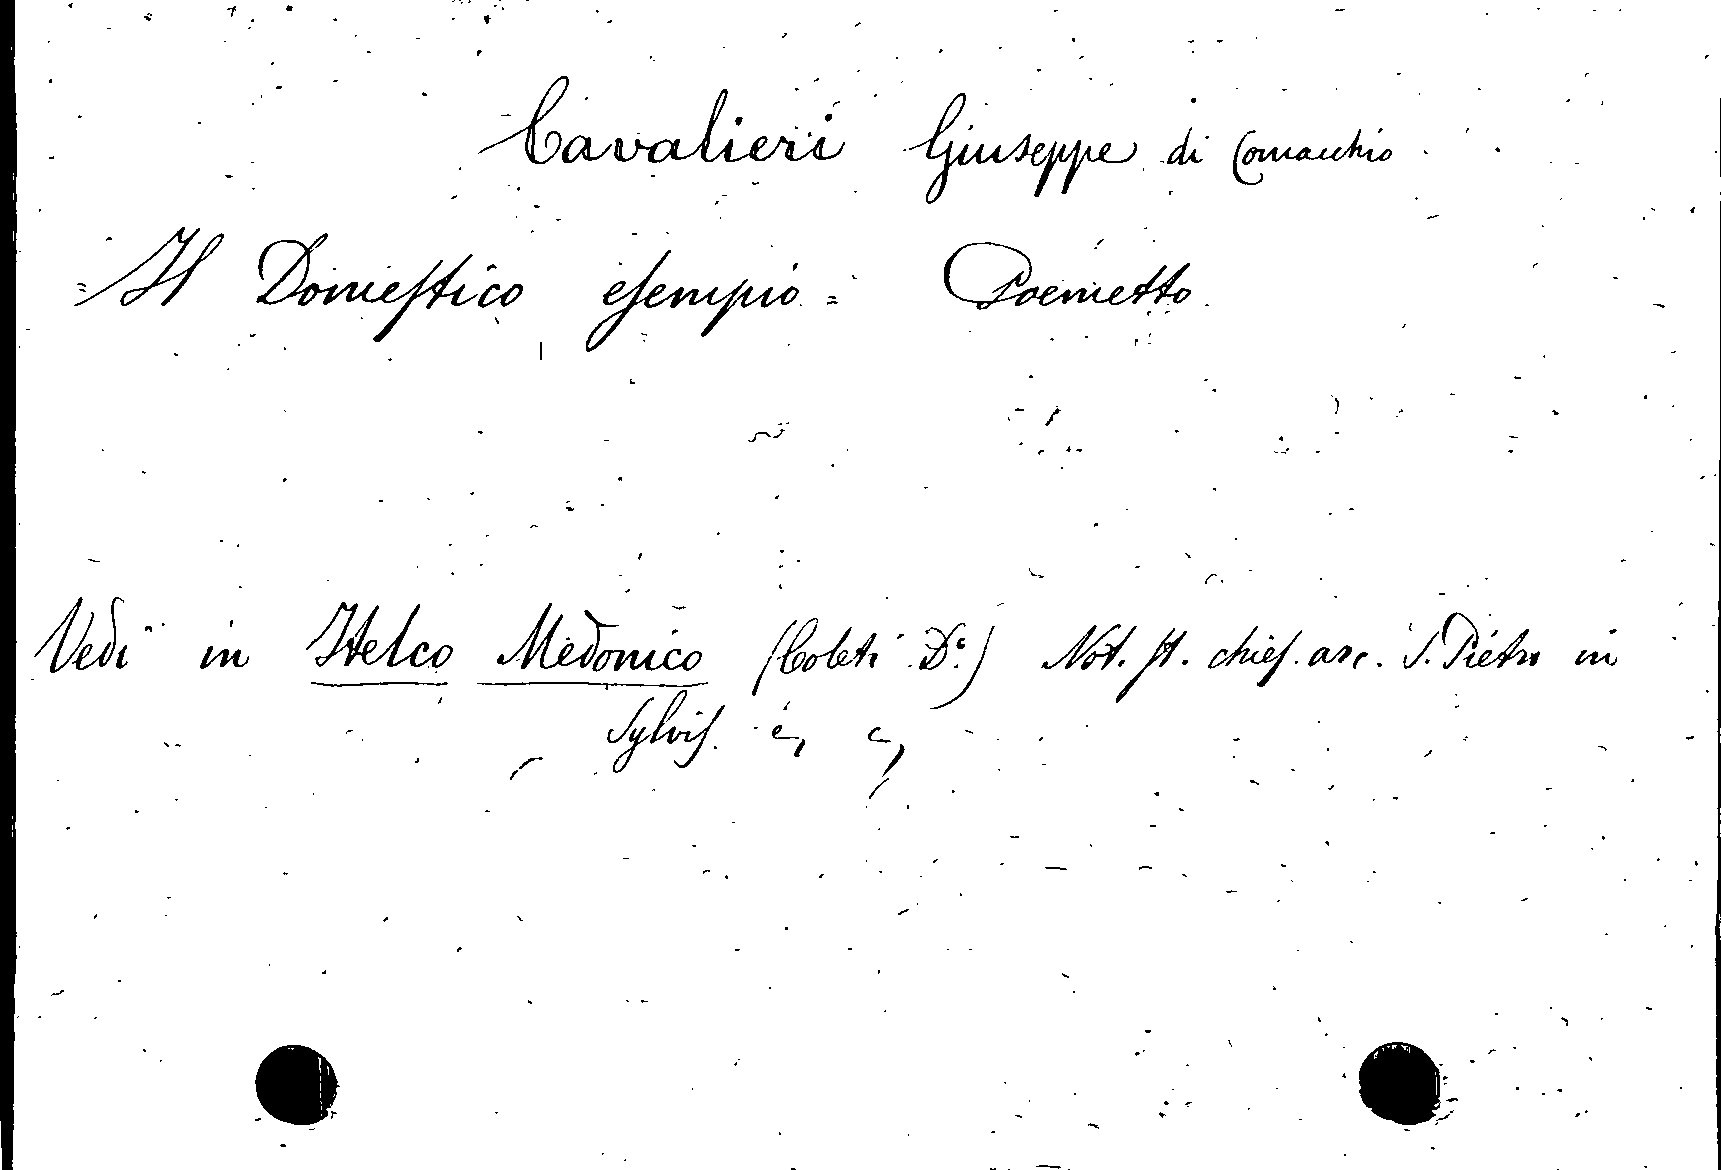 Cavalieri Giuseppe di Comacchio
= Il Domestico esempio = Poemetto
Vedi in Itelco Medonico (Coleti D.e) Not. st. chies. arc. S. Pietro in
Sylvis.